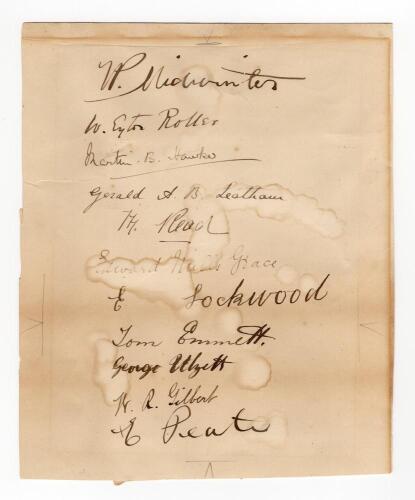 W. Midwinter
W. Eyton Roller
Martin. B. Hawke
Gerald A. B. Leatham
M. Read
Edward Mills Grace
E Lockwood
Tom Emmett.
George Ulyett
W. R. Gilbert
E Peate